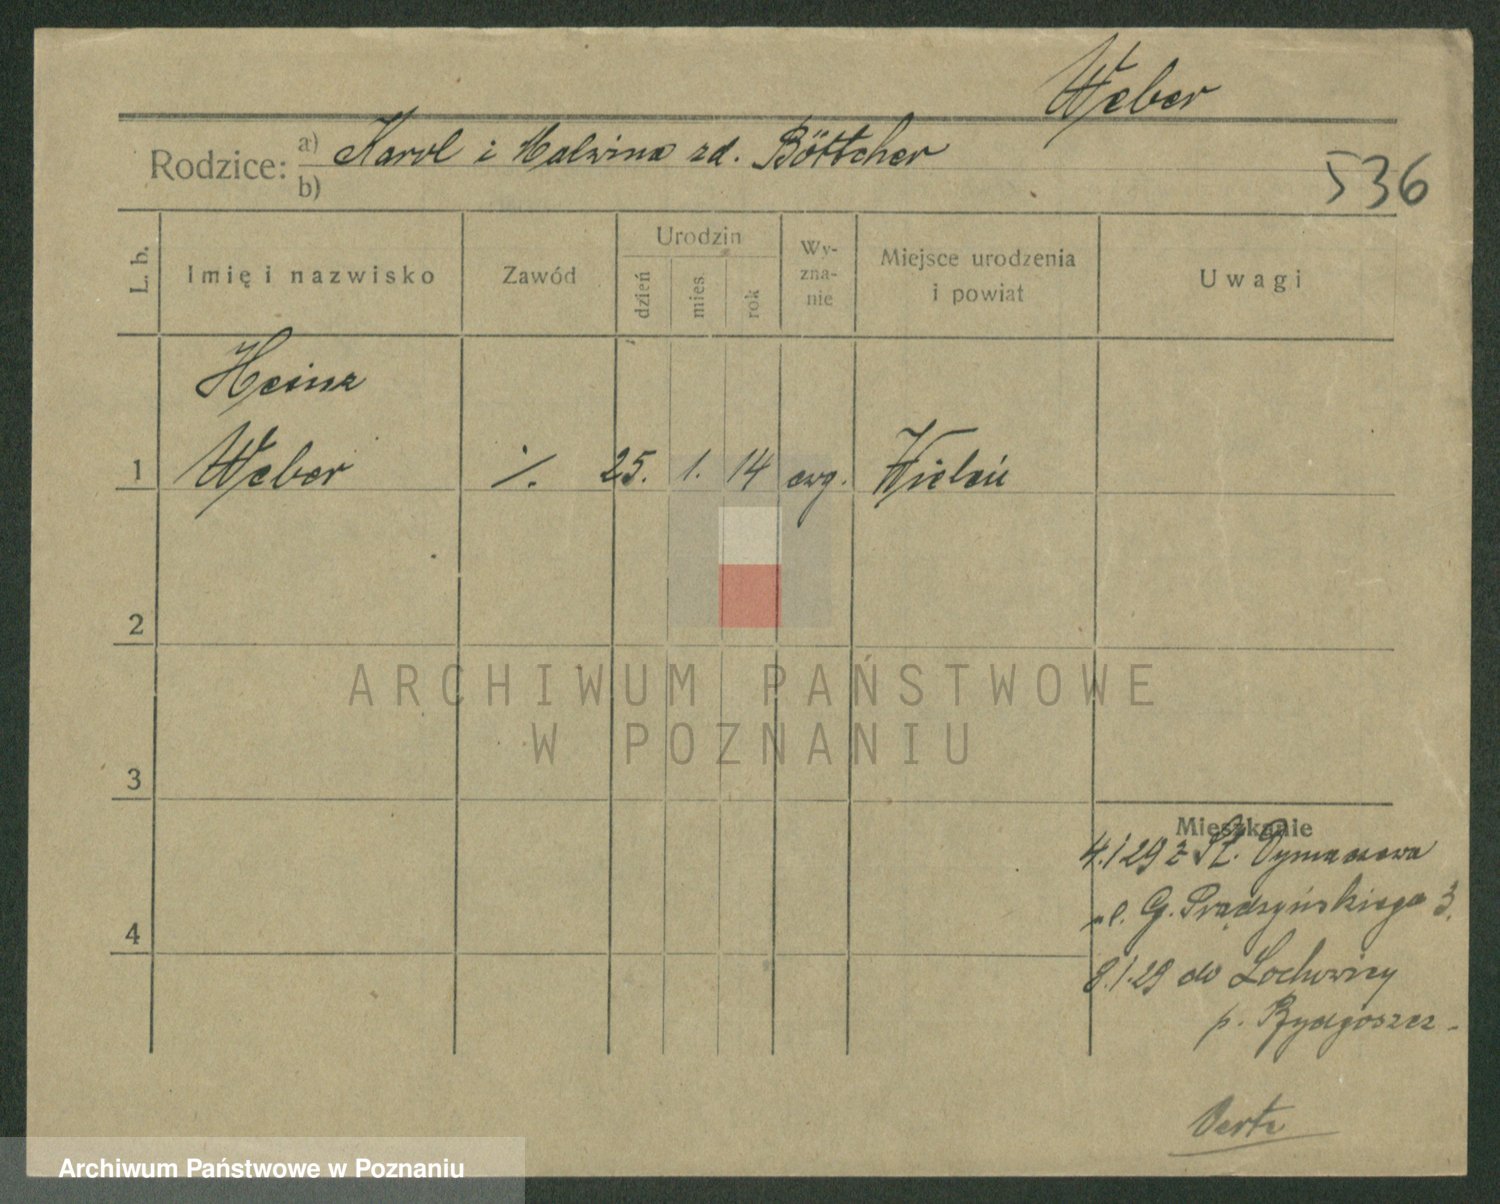 Weber
Rodzice: a) Karol i Malwina zd. Böttcher
b)
536
L. b.
Imię i nazwisko
Zawód
Urodzin
dzień
mies
rok
Wy-
zna-
nie
Miejsce urodzenia
i powiat
Uwagi
Heinz
1 Weber ·/. 25. 1. 14 ewg. Wieleń
2
3
4
Mieszkanie
4.1 29 z St. Dymaczewa
ul. G. Prądzyńskiego 3.
8.1.29 do Łochowicy
p. Bydgoszcz -
Verte
ARCHIWUM PAŃSTWOWE
W POZNANIU
Archiwum Państwowe w Poznaniu